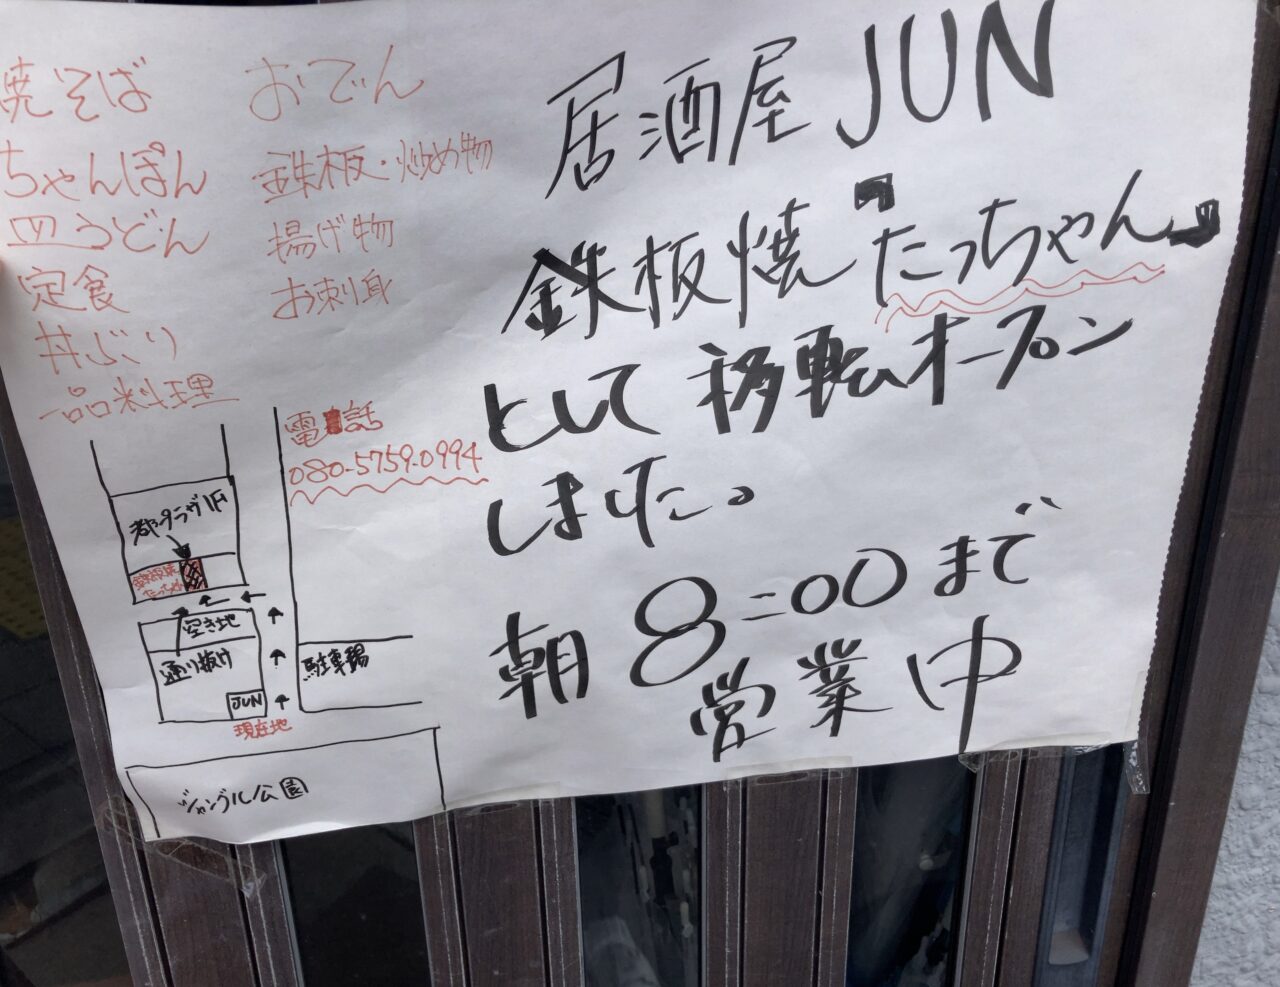 居酒屋 JUN
鉄板焼『たっちゃん』
として移転オープン
しました。
朝 8:00まで
営業中
焼そば
ちゃんぽん
皿うどん
定食
丼ぶり
一品料理
おでん
鉄板・炒め物
揚げ物
お刺身
電話
080-5759-0994
1F
鉄板焼
たっちゃん
空き地
通り抜け
JUN
現在地
駐車場
ジャングル公園